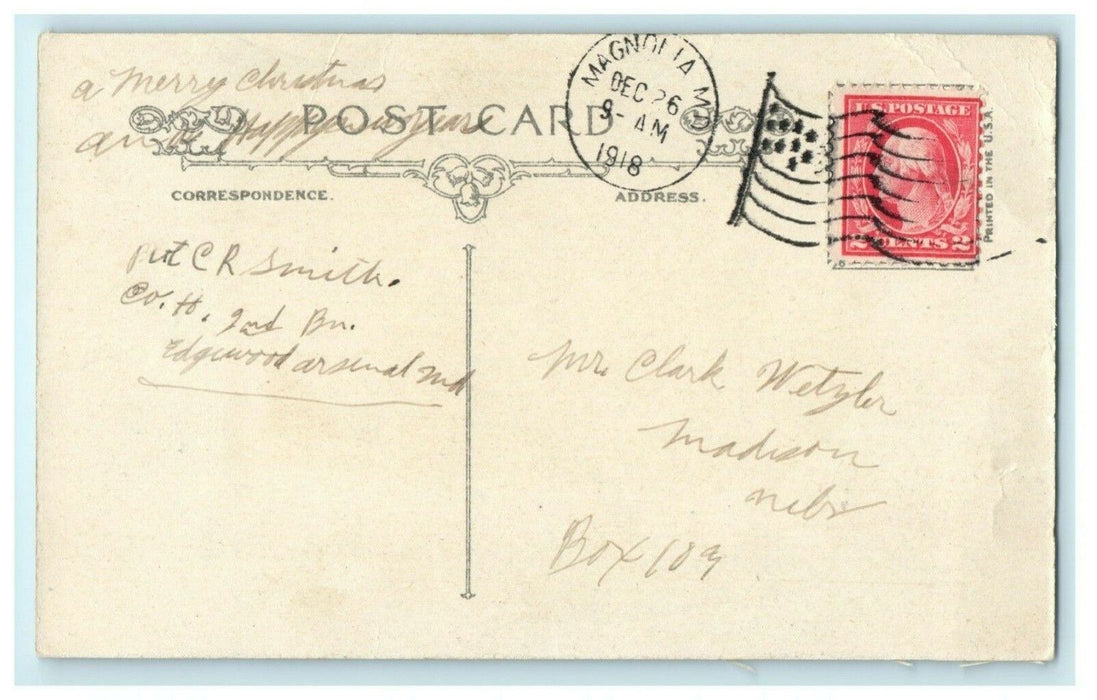 a Merry Christmas
and a Happy new year
POST CARD
CORRESPONDENCE.
ADDRESS.
MAGNOLIA MD.
DEC 26
9- AM
1918
U.S. POSTAGE
2 CENTS 2
PRINTED IN THE U.S.A.
Pvt C R Smith.
Co. H. 2nd Bn.
Edgewood arsenal Md
Mr. Clark Wetzler
Madison
Nebr
Box 109